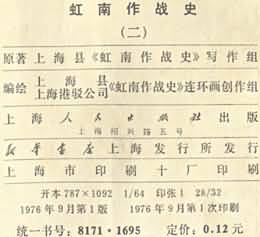 虹南作战史
(二)
原著 上海县《虹南作战史》写作组
编绘 上海县 上海港驳公司《虹南作战史》连环画创作组
上海人民出版社出版
上海绍兴路五号
新华书店上海发行所发行
上海市印刷十厂印刷
开本 787×1092 1/64 印张 1 28/32
1976年9月第1版 1976年9月第1次印刷
统一书号：8171·1695 定价：0.12元